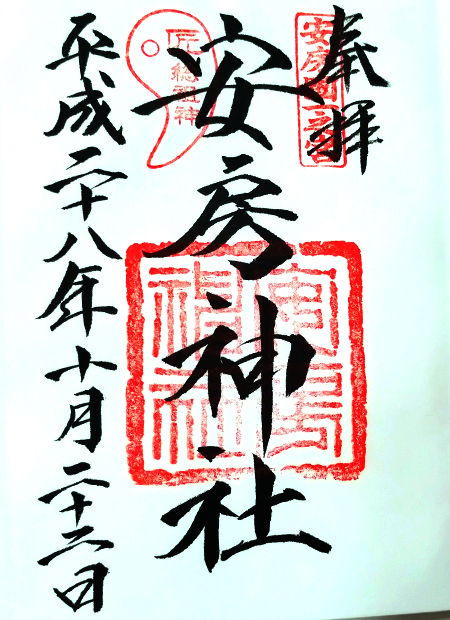 奉拝
安房國一之宮
安房神社
匠総祖神
安房神社
平成二十八年十月二十六日